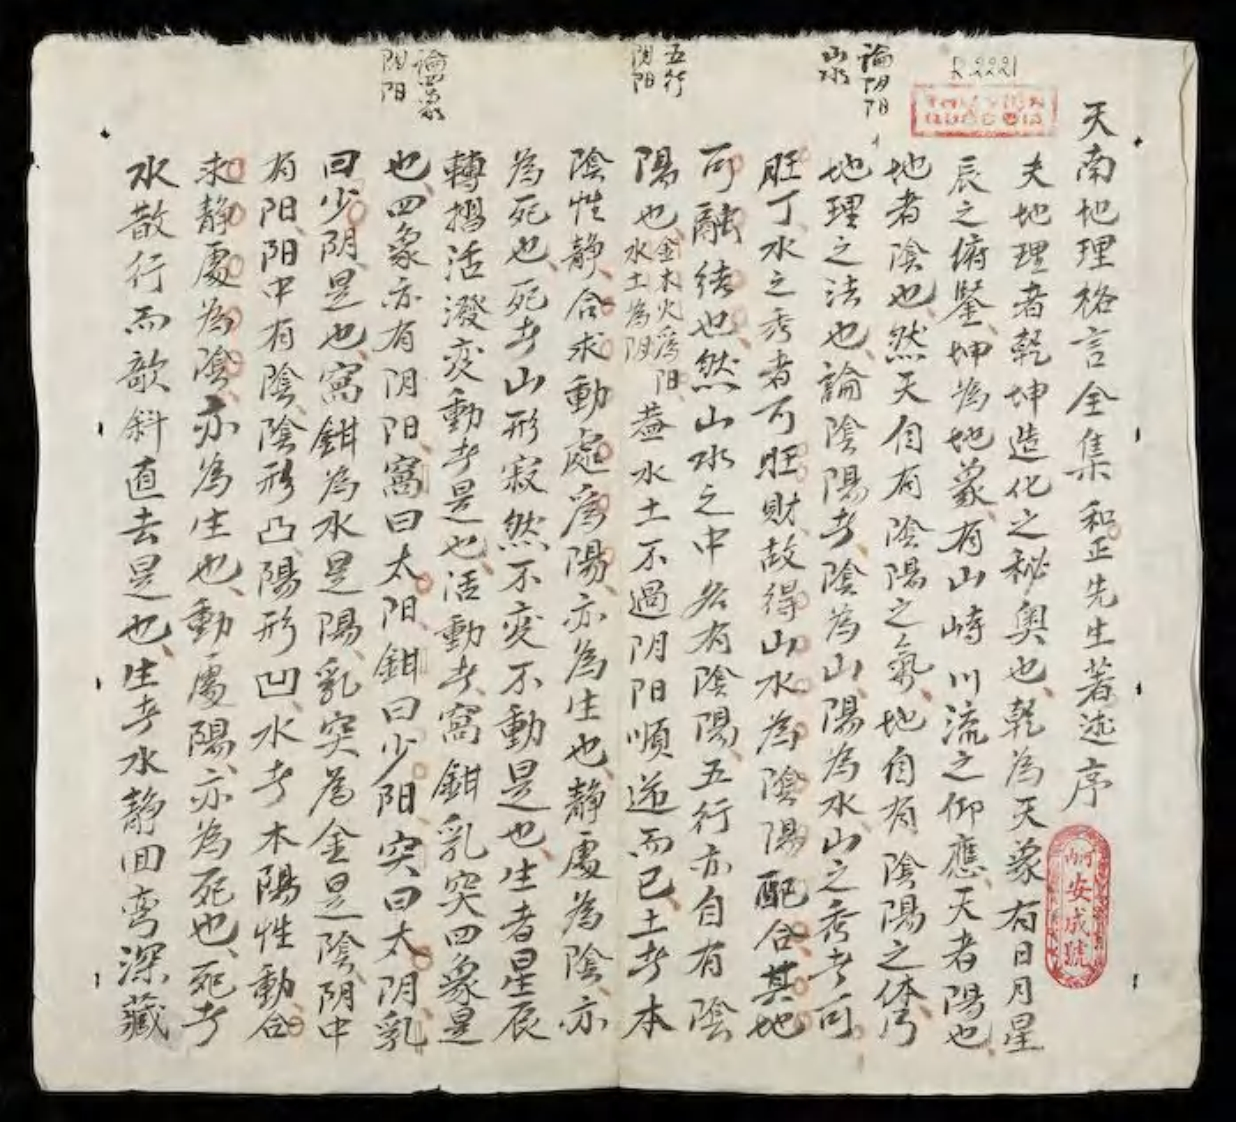 R.2221
THƯ VIỆN
QUỐC GIA
天南地理格言全集 和正先生著述序
河內
安成號
夫地理者乾坤造化之秘奧也乾為天象有日月星
辰之俯鑒坤為地象有山峙川流之仰應天者陽也
地者陰也然天自有陰陽之氣地自有陰陽之体乃
論阴阳
山水
地理之法也論陰陽者陰為山陽為水山之秀者可
旺丁水之秀者可旺財故得山水為陰陽配合其地
可融结也然山水之中各有陰陽五行亦自有陰
五行
阴阳
陽也金木火為阳水土為阴盖水土不過阴阳順逆而已土者本
陰性静合求動處為陽亦為生也静處為陰亦
為死也死者山形寂然不变不動是也生者星辰
轉摺活潑变動者是也活動者窩鉗乳突四象是
論四象
阴阳
也四象亦有阴阳窩曰太阳鉗曰少阳突曰太阴乳
曰少阴是也窩鉗為水是陽乳突為金是陰阴中
有阳阳中有陰陰形凸陽形凹水者本陽性動合
求静處為陰亦為生也動處陽亦為死也死者
水散行而欹斜直去是也生者水静回弯深藏